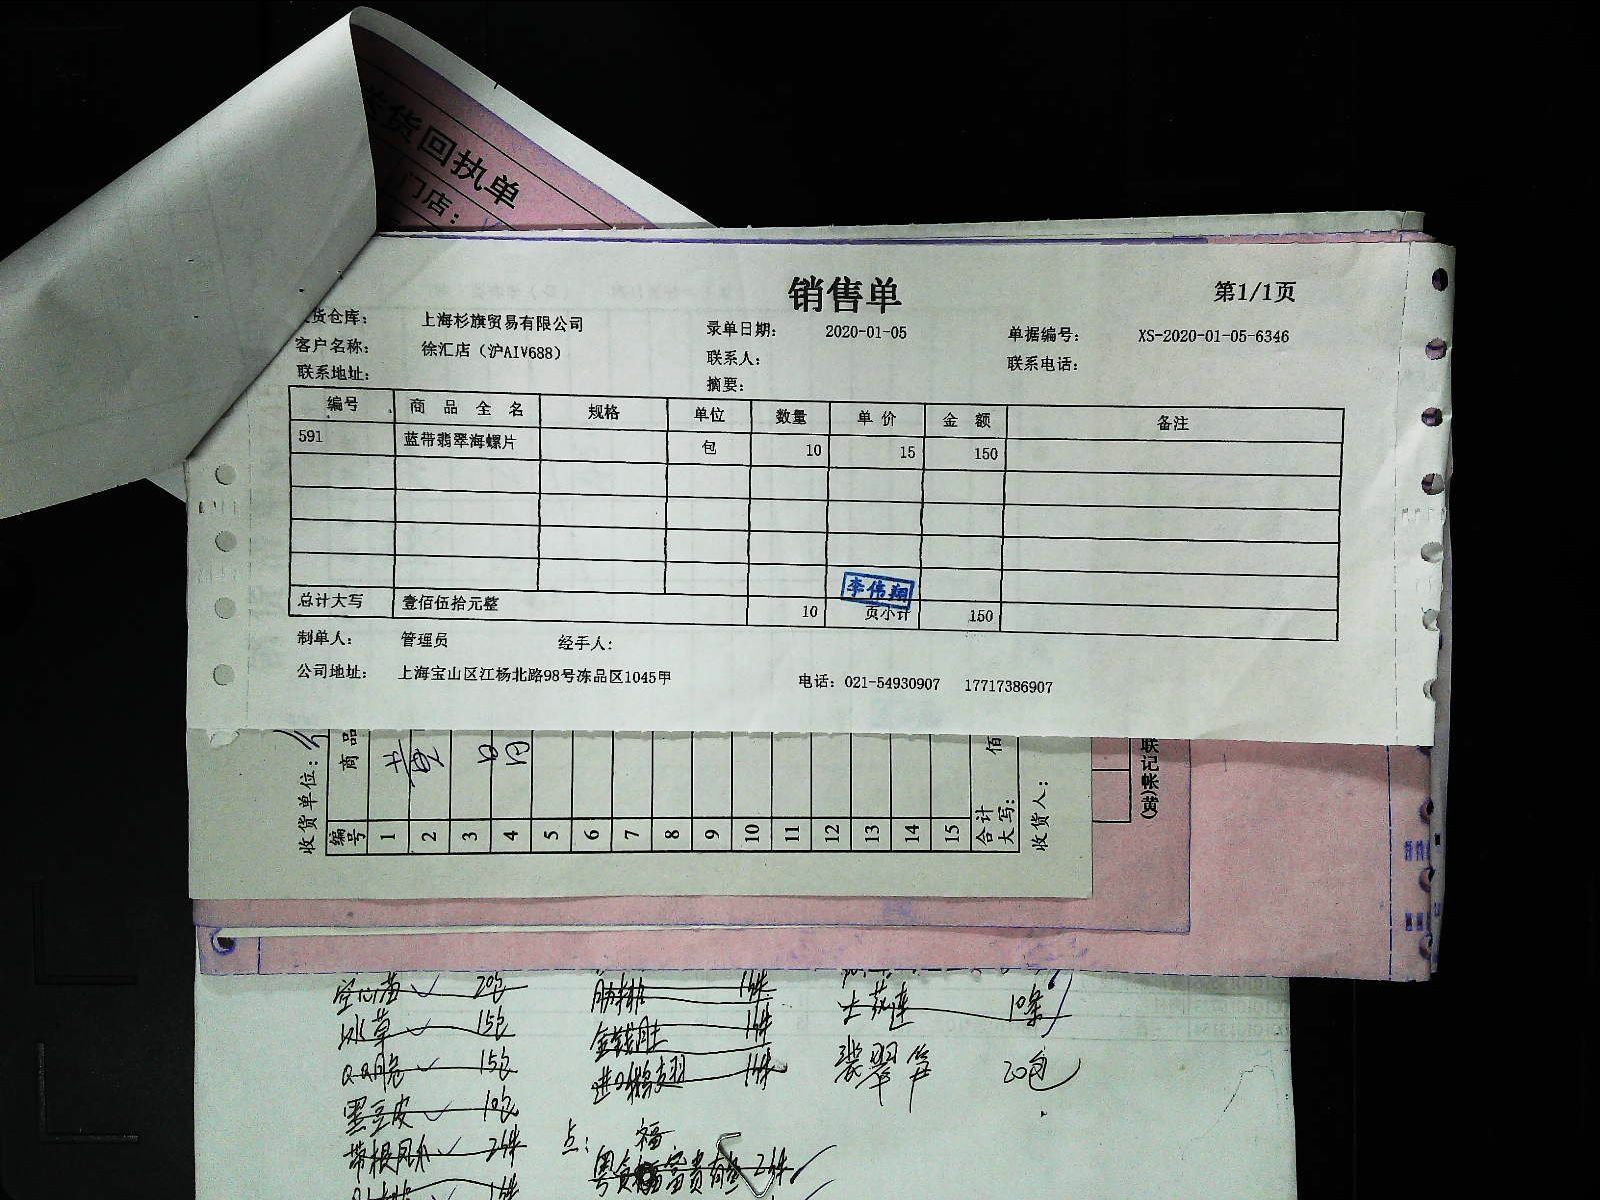 货回执单
门店：
销售单
第1/1页
货仓库： 上海杉旗贸易有限公司 录单日期： 2020-01-05 单据编号： XS-2020-01-05-6346
客户名称： 徐汇店（沪AIV688） 联系人： 联系电话：
联系地址： 摘要：
编号 商品全名 规格 单位 数量 单价 金额 备注
591 蓝带翡翠海螺片 包 10 15 150
李伟翔
总计大写 壹佰伍拾元整 10 页小计 150
制单人： 管理员 经手人：
公司地址： 上海宝山区江杨北路98号冻品区1045甲 电话：021-54930907 17717386907
收货单位：
编号 商品
1
2
3
4
5
6
7
8
9
10
11
12
13
14
15
合计大写： 佰
收货人：
联记帐(黄)
空心苗 20包
冰草 15包
黑豆皮 10包
金钱肚 1件
10条
翠笋 20包
点：
福
富贵有鱼 2件